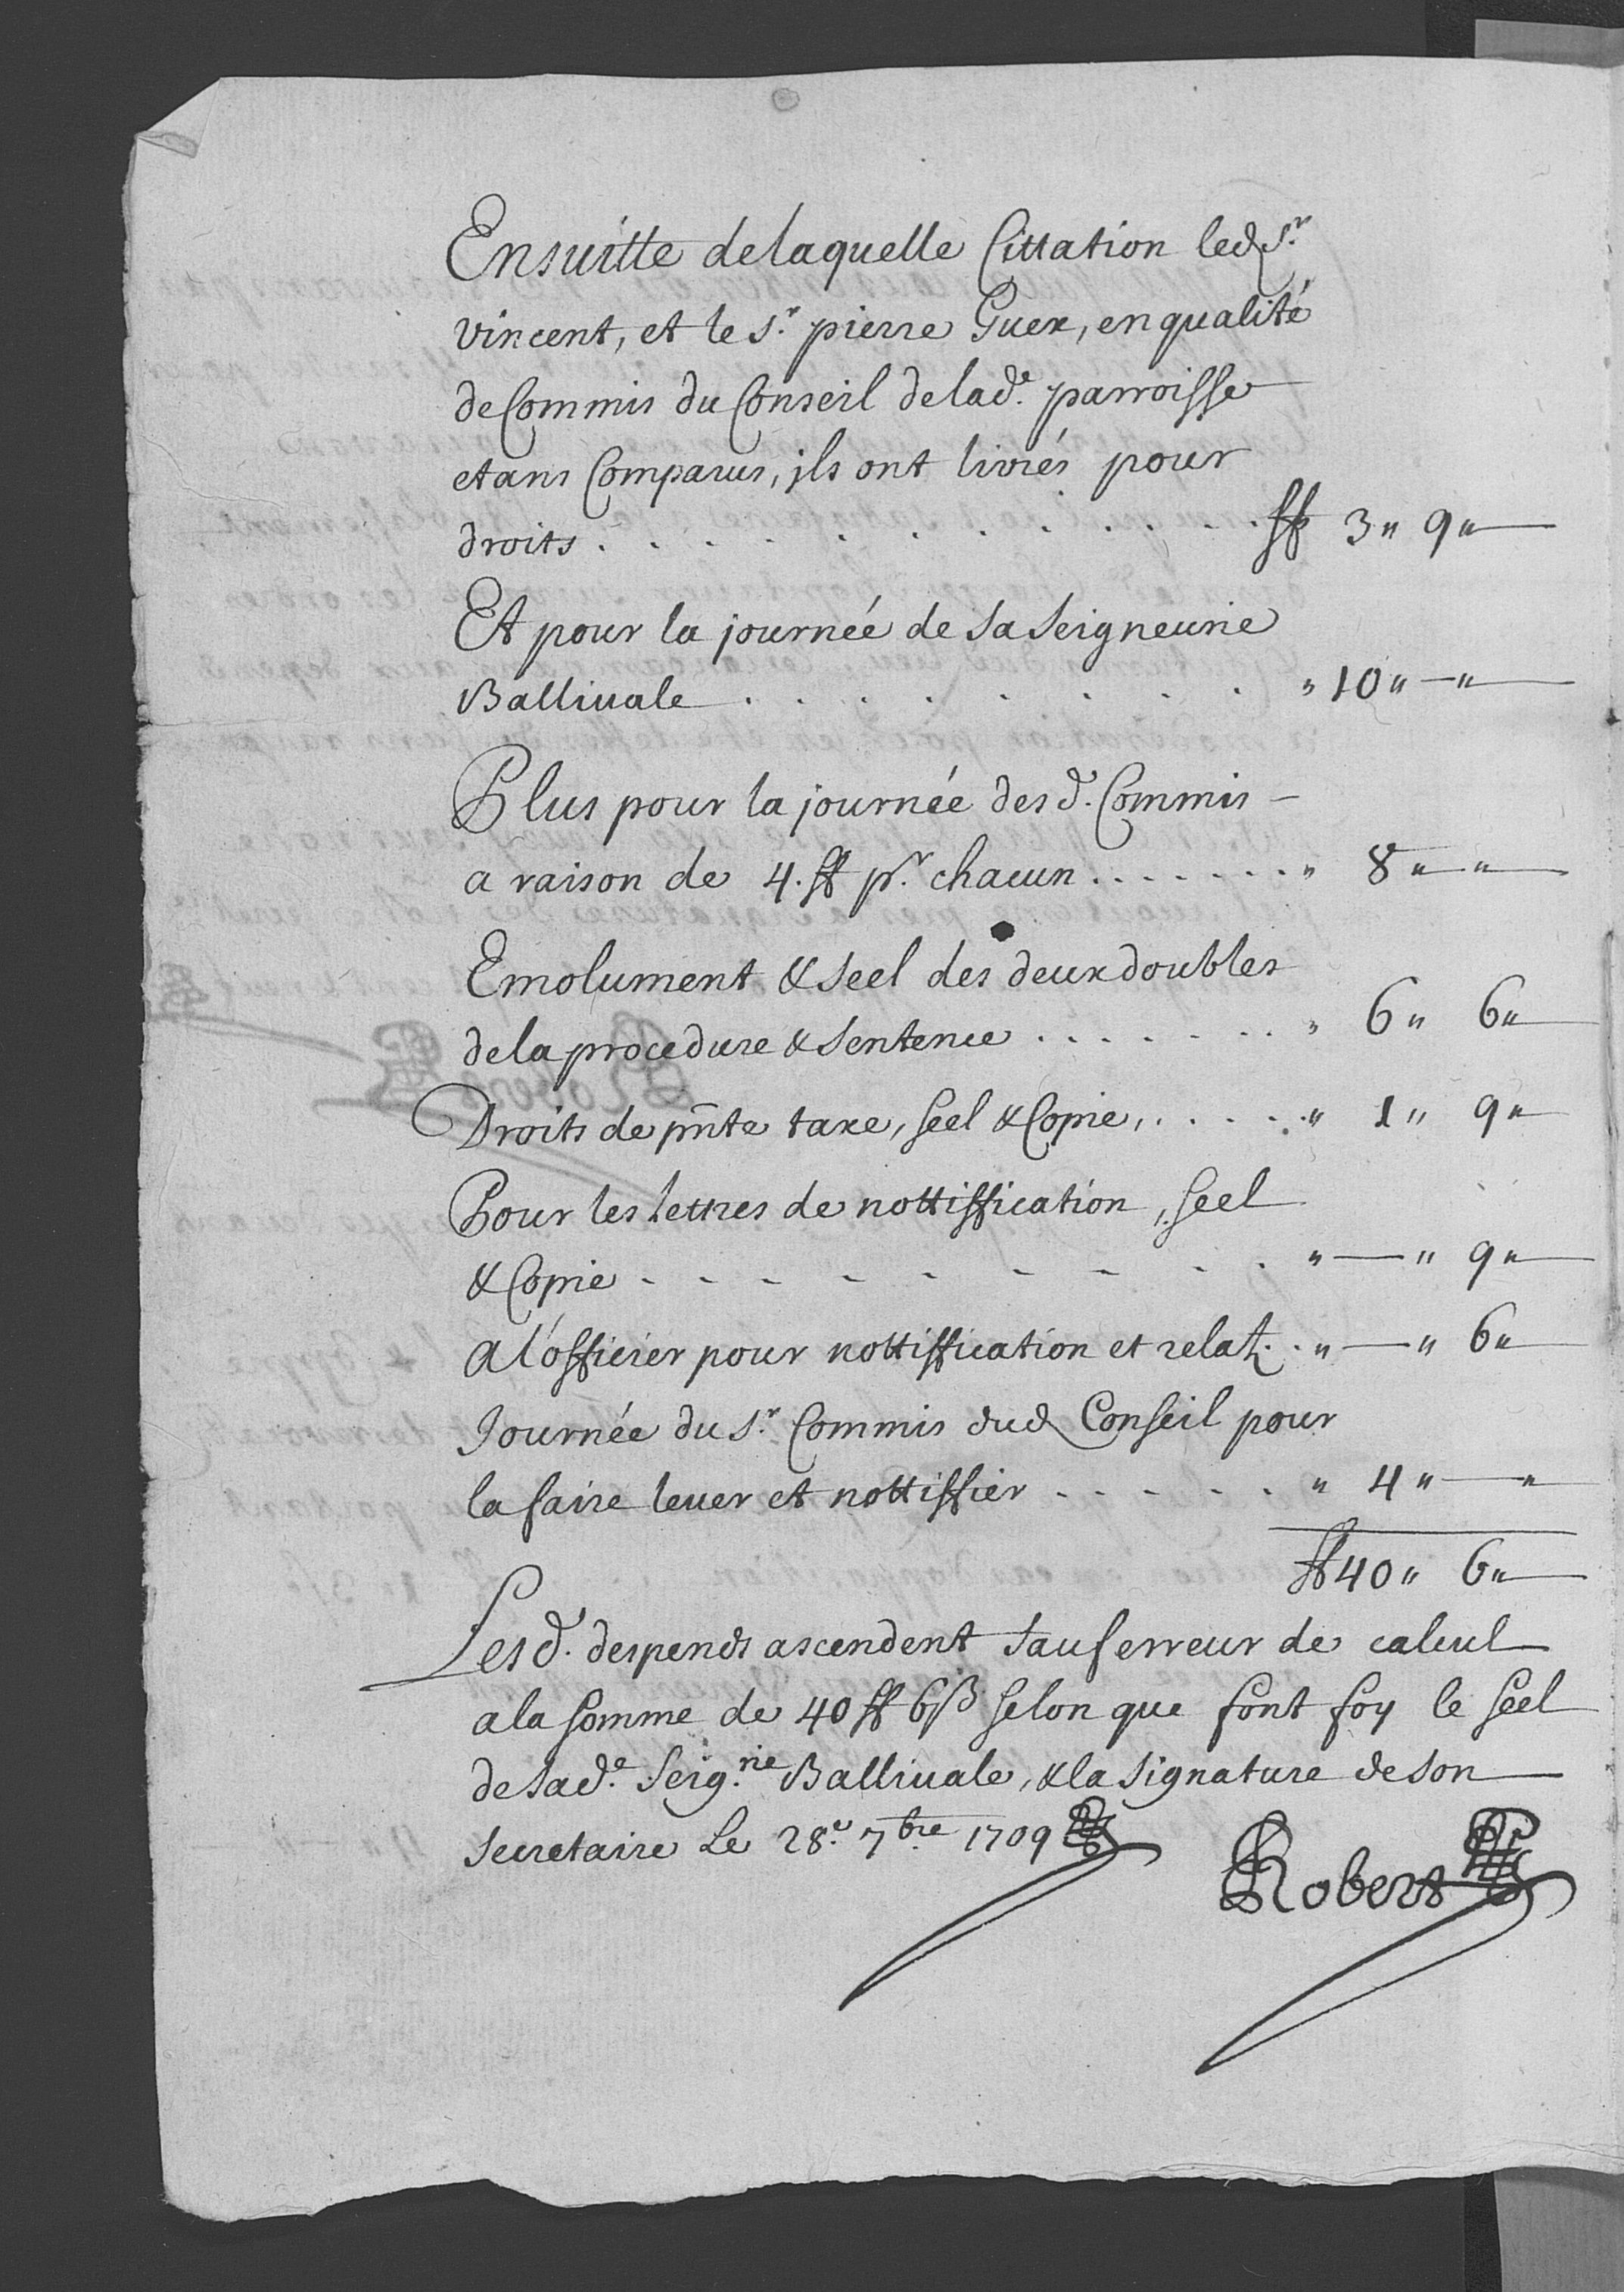 Ensuitte de laquelle Cittation led Sr.
Vincent, et le Sr. pierre Guex, en qualité
de Commis du Conseil de lade. parroisse
etans Comparus, ils ont livrés pour
droits . . . . . . . . . . ff 3 " 9 "
Et pour la journéé de Sa Seigneurie
Balliuale . . . . . . . . " 10 " — "
Plus pour la journéé des d. Commis —
a raison de 4. ff pr. chacun . . . . . . . " 8 " "
Emolument & Seel des deux doubles
de la procedure & Sentence . . . . . . . " 6 " 6 "
Droits de pnte taxe, Seel & Copie, . . . . . " 1 " 9 "
Pour les lettres de nottiffication, Seel
& Copie - - - - - - - - . " — " 9 "
a l'officier pour nottiffication et relat. . " — " 6 "
Journéé du Sr. Commis dud Conseil pour
la faire leuer et nottiffier . . . . . . " 4 " — "
ff 40 " 6 "
Les d. despends ascendent Sauf erreur de calcul
a la Somme de 40 ff 6 ß Selon que font foy le Seel
de Sade. Seig.rie Balliuale, & la Signature de Son
Secretaire Le 28e. 7bre. 1709
Robert